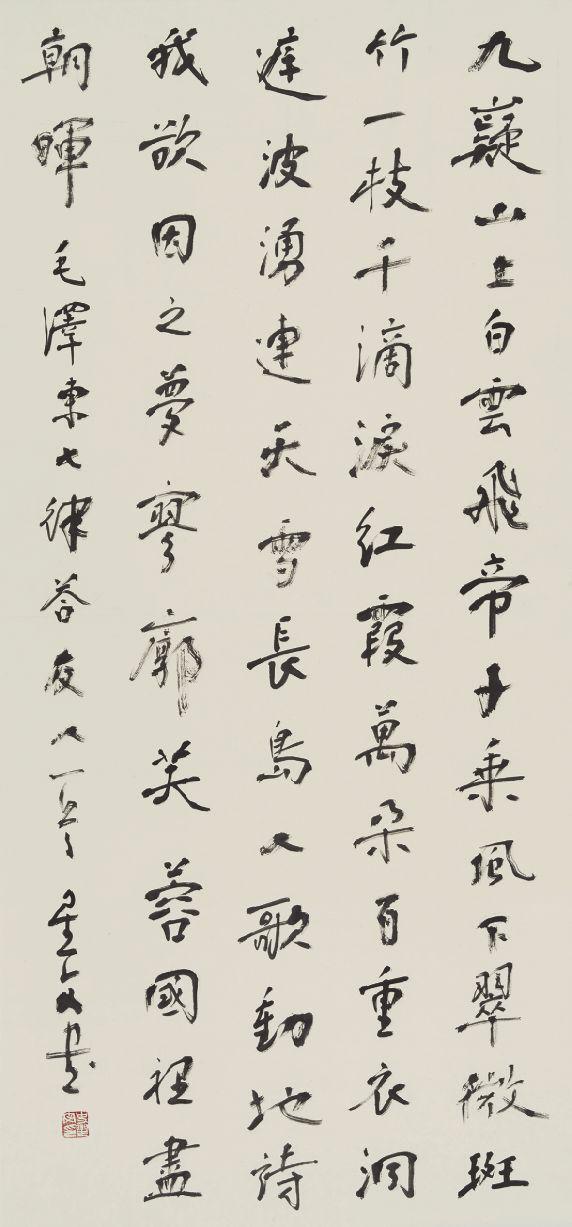 九嶷山上白雲飛帝子乘風下翠微斑
竹一枝千滴淚紅霞萬朵百重衣洞
庭波湧連天雪長島人歌動地詩
我欲因之夢寥廓芙蓉國裡盡
朝暉 毛澤東七律答友人一首 書